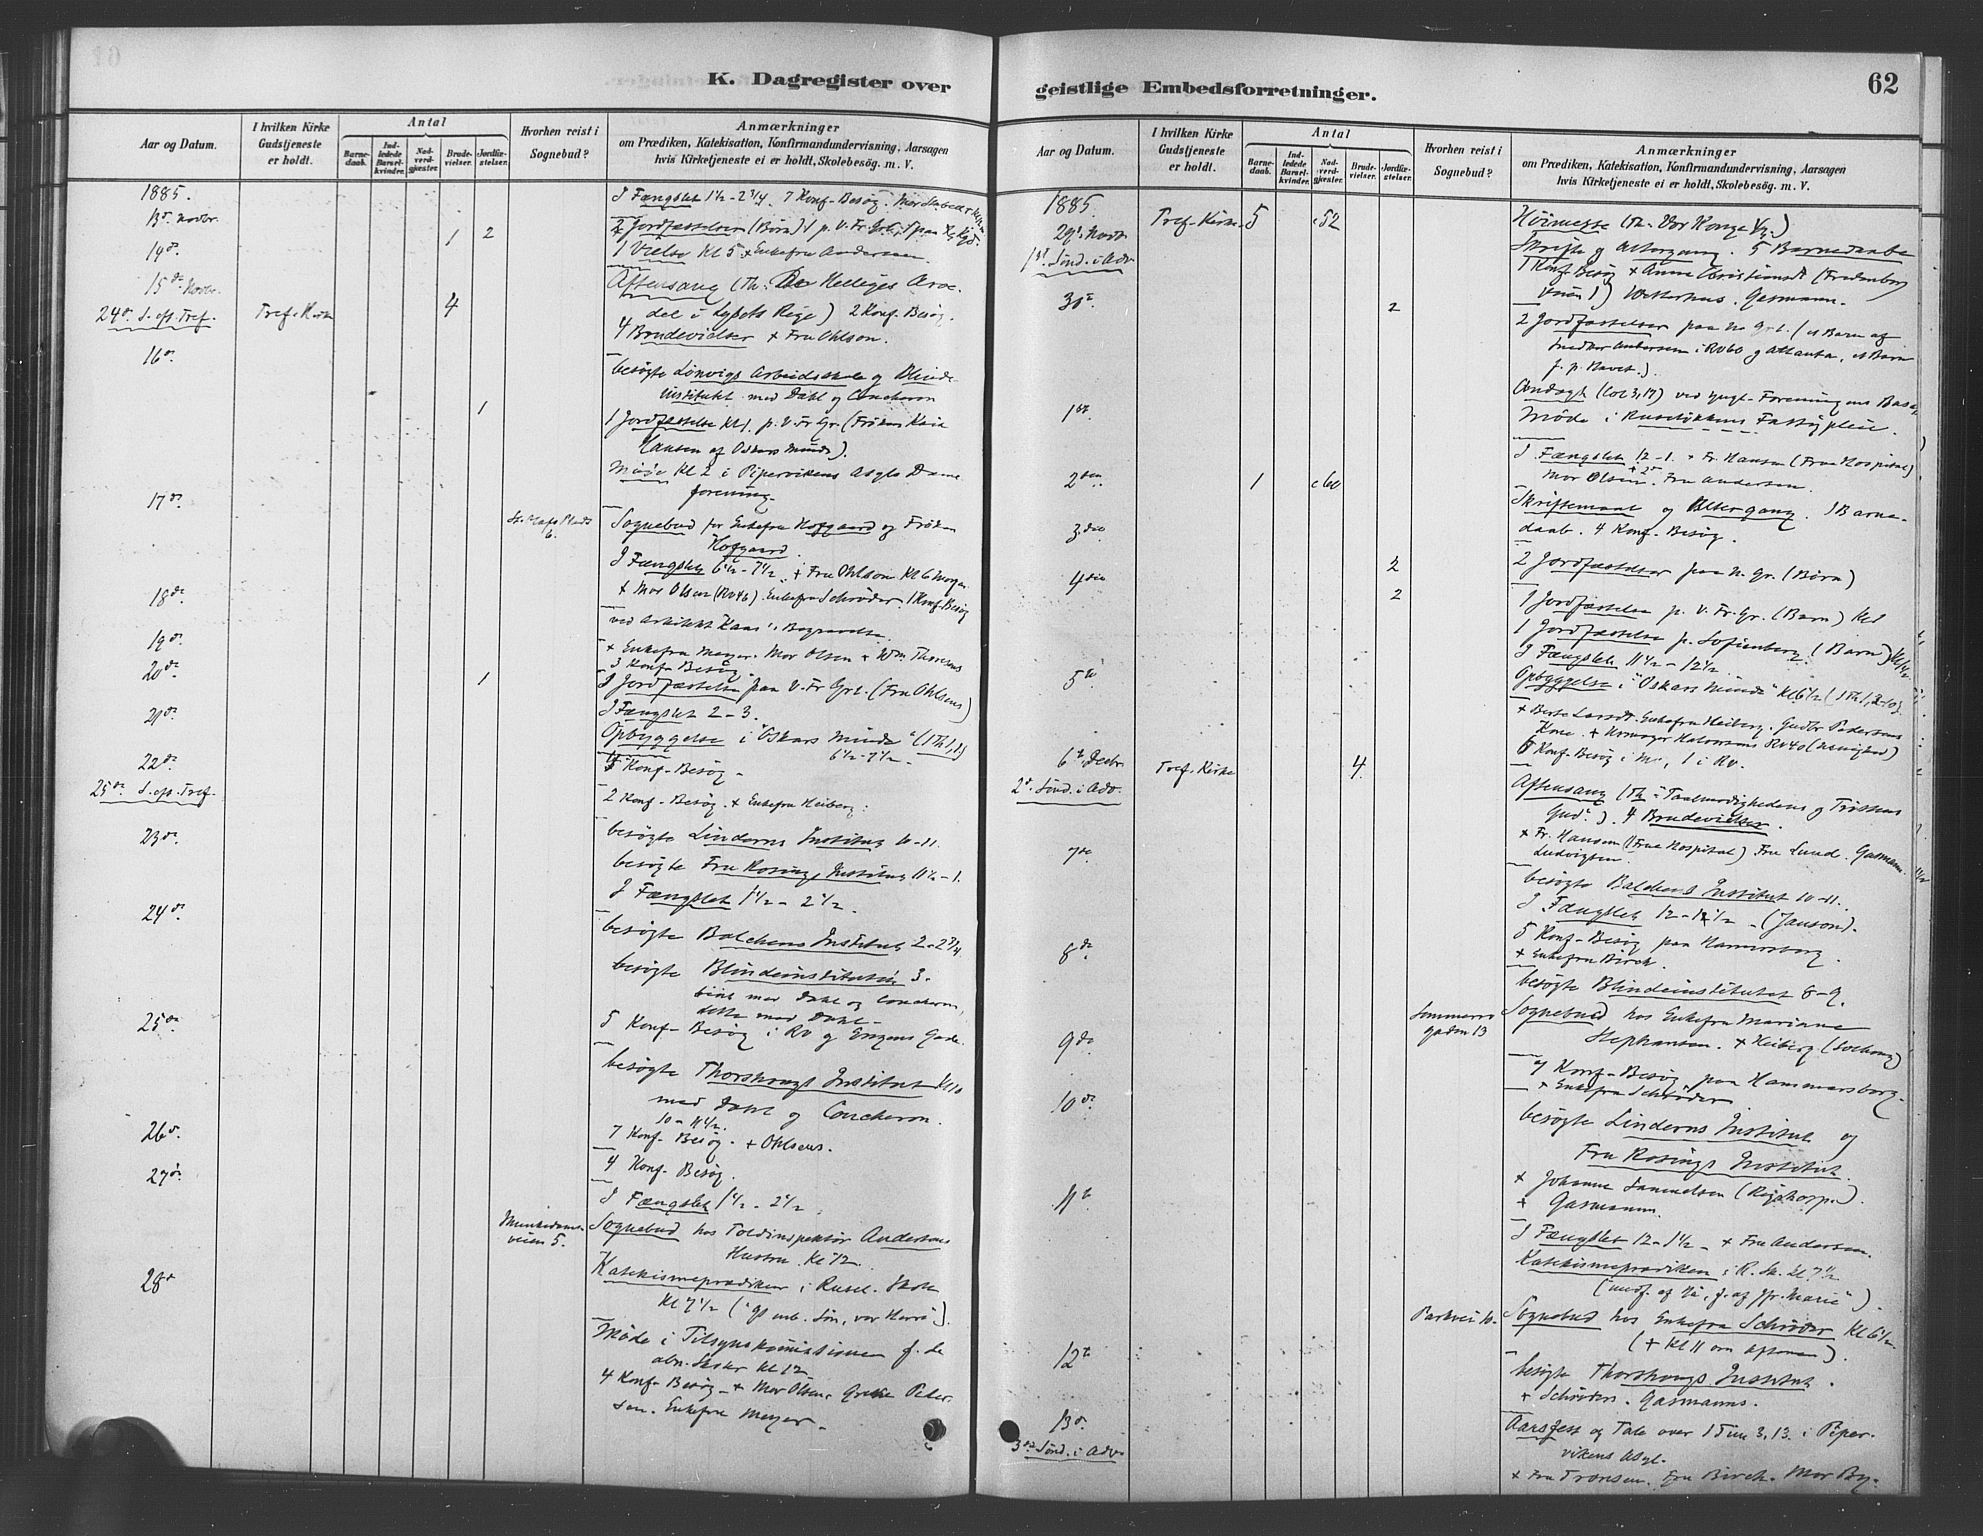 K. Dagregister over
Aar og Datum.
I hvilken Kirke Gudstjeneste er holdt.
Antal
Barnedaab.
Indledede Barselkvinder.
Nadverdgjæster.
Brudevielser.
Jordfæstelser.
Hvorhen reist i Sognebud?
Anmærkninger
om Prædiken, Katekisation, Konfirmandundervisning, Aarsagen
hvis Kirketjeneste ei er holdt, Skolebesøg. m. V.
1885.
13de Novbr.
I Fængslet 1½-2¾. 7 Konf-Besøg.
14de
1 2
2 Jordfæstelser (Børn)
1 Vielse Kl 5 + Enkefru Andersen.
15de Novbr.
24de S. ep. Tref.
Tref. Kirke
4
Aftensang (Th: Helliges Arve-
del i Lysets Rige) 2 Konf. Besøg.
4 Brudevielser + Fru Ohlson.
16de
besøgte Lønvigs Arbeidsskole og Blinde-
institutet med Dahl og Concheron
1
1 Jordfæstelse Kl 1. p. V. Fr Gr. (Frøken
Hansen af Oskars Minde).
Møde Kl 2 i Pipervikens Asyls Dame-
forening.
17de
Sognebud for Enkefru Hofgaard og Frøken
Hofgaard.
I Fængslet 6½-7½. + Fru Ohlson Kl 6 Morgen
18de
+ Mor Olsen (Rv 46). Enkefru Schrøder, 1 Konf-Besøg
ved Arkitekt Begravelse.
19de
+ Enkefru Meyer. Mor Olsen +
3 Konf-Besøg.
20de
1
1 Jordfæstelse paa V. Fr Gr. (Fru Ohlsens)
I Fængslet 2-3.
21de
Opbyggelse i "Oskars Minde" (1 Th 1,
6½-7½
22de
25de S. ep. Tref.
Konf-Besøg
2 Konf-Besøg. + Enkefru Heiberg.
23de
besøgte Linderns Institut 10-11.
besøgte Fru Rosings Institut 11½-1.
I Fængslet 1½-2½.
24de
besøgte Balchens Institut 2-2¾.
besøgte Blindeinstitutet 3.
med Dahl og Concheron,
dette med Dahl.
25de
5 Konf-Besøg i RV og Gade.
besøgte Thorshougs Institut Kl 10
med Dahl og Concheron.
10-11½.
26de
7 Konf-Besøg. + Ohlsens.
27de
4 Konf-Besøg.
I Fængslet 1½-2½.
Munkedams-
veien 5.
Sognebud hos Toldinspektør Andersens
Hustru. Kl 12.
28de
Katekismeprædiken i Rusel. Skole
Kl 7½ ("Gs enb. Søn, vor Herre").
Møde i Tilsynskomissionen f. de
abn. Skoler Kl 12
4 Konf-Besøg + Mor Olsen. Grethe Peter-
sen. Enkefru Meyer.
geistlige Embedsforretninger.
62
Aar og Datum.
I hvilken Kirke Gudstjeneste er holdt.
Antal
Barnedaab.
Indledede Barselkvinder.
Nadverdgjæster.
Brudevielser.
Jordfæstelser.
Hvorhen reist i Sognebud?
Anmærkninger
om Prædiken, Katekisation, Konfirmandundervisning, Aarsagen
hvis Kirketjeneste ei er holdt, Skolebesøg. m. V.
1885.
29de Novbr
1ste Sønd. i Adv.
Tref. Kirke
5
c 52
Høimesse (Th. Vor Konge
Skrifte og Altergang. 5 Barnedaabe
1 Konf Besøg + Anne Christiansdt (Fredensborg
veien 1) Westerhus. Gasmann.
30te
2
2 Jordfæstelser paa N. Gr. (et Barn af
Snedker Andersen i Rv 60 og et Barn
f. p. Navet.).
1ste
Andagt (Col 3,17) ved Ynglg-Foreningens Basar
Møde i Ruseløkkens Fattigpleie.
I Fængslet 12-1. + Fr. Hansen (Frue Hospital)
Mor Olsen. Fru Andersen.
2den
1
c 60
Skriftemaal og Altergang. 1 Barne-
daab. 4 Konf-Besøg.
3die
2
2 Jordfæstelser paa N. Gr. (Børn)
4die
2
1 Jordfæstelse p. V. Fr. Gr. (Barn) Kl 1
1 Jordfæstelse p. Sofienberg (Barn)
I Fængslet 11½-12½
5te
Opbyggelse i "Oskars Minde" Kl 6½ (1 Th 1,2-10).
+ Berte Larsdt. Enkefru Heiberg. Gudbr Pedersens
Kone. + Halvorsens RV 40 (Uenighed)
6 Konf-Besøg i M., 1 i RV.
6te Decbr
2de Sønd. i Adv.
Tref. Kirke
4
Aftensang (Th: "Taalmodighedens og Trøstens
Gud".). 4 Brudevielser.
+ Fr. Hansen (Frue Hospital) Fru Lund. Gasmann.
Ludvigsen.
7de
besøgte Balchens Institut 10-11.
I Fængslet 12-1½ (Janson).
5 Konf-Besøg paa Hammersborg.
+ Enkefru Birch.
8de
besøgte Blindeinstitutet 8-9.
Sommerro
gaden 13
Sognebud hos Enkefru Mariane
Stephansen. + Heiberg
9de
7 Konf-Besøg paa Hammersborg.
+ Enkefru Schrøder
10de
besøgte Linderns Institut og
Fru Rosings Institut.
+ Johanne Samuelsen
+ Gasmann.
11te
I Fængslet 12-1½ + Fru Andersen.
Katekismeprædiken i R. Sk. Kl 7½
("undf. af f. af Jfr. Marie").
Parkvei
Sognebud hos Enkefru Schrøder Kl 6½
(+ Kl 11 om Aftenen).
12te
besøgte Thorshougs Institut.
+ Schrøders. Gasmanns.
13de
3die Sønd. i Adv.
Aarsfest og Tale over 1 Tim 3,13. i Piper-
vikens Asyl.
+ Fru Tronsen. Fru Birch. Mor